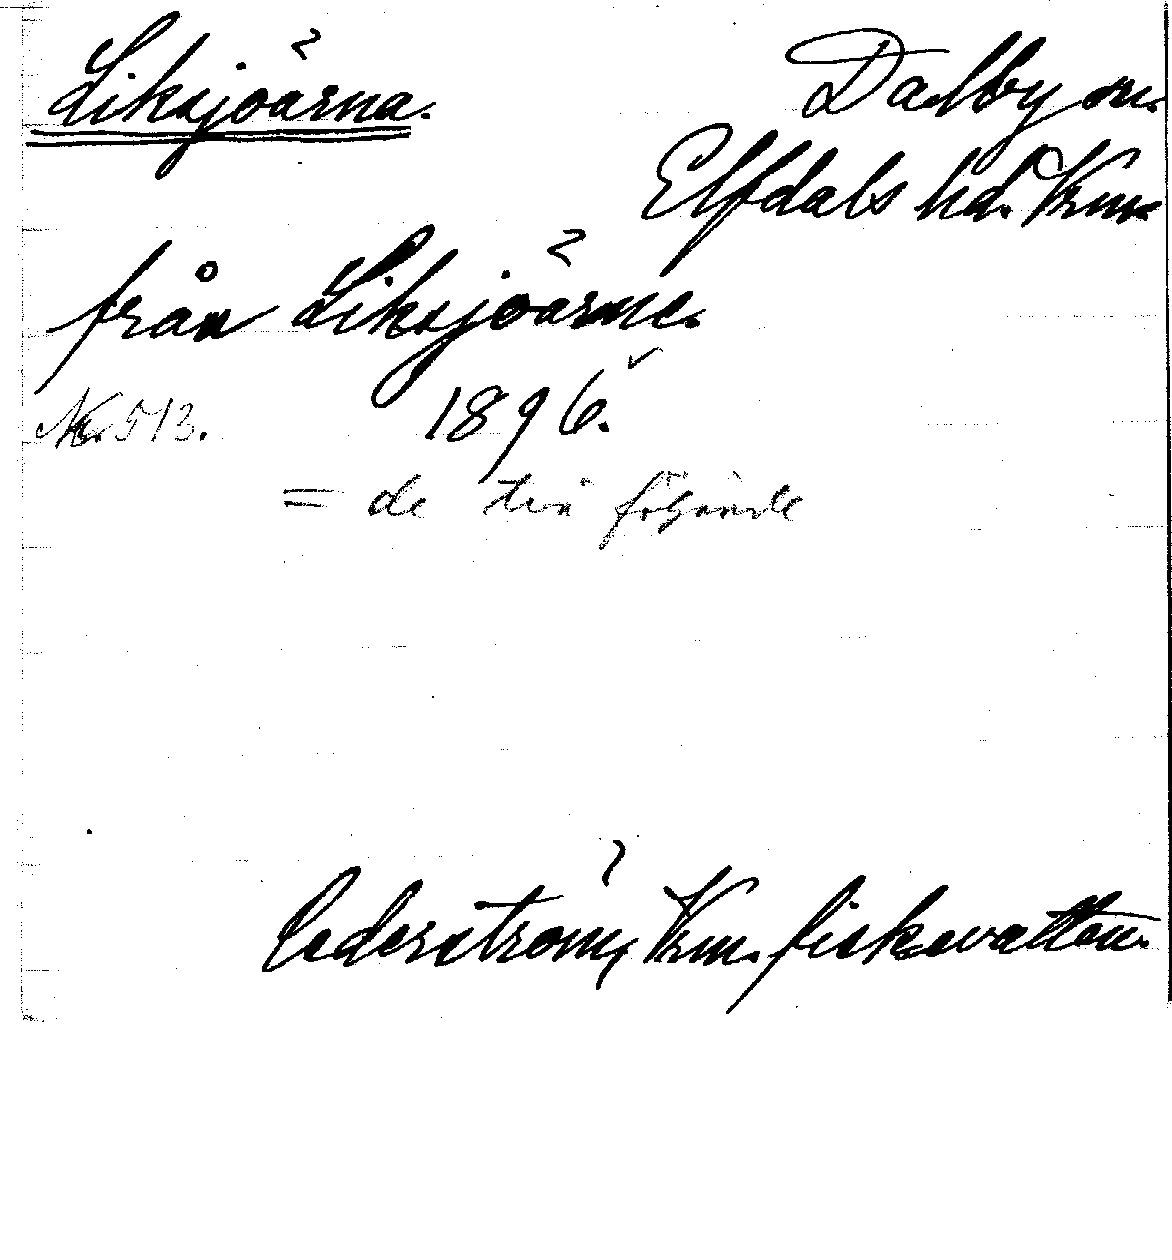 Liksjöarna. Dalby sn.
Elfdals hd. Vrm.
från Liksjöarne.
Nr. 513. 1896.
= de två följande
Cederström, Vrm. fiskevatten.